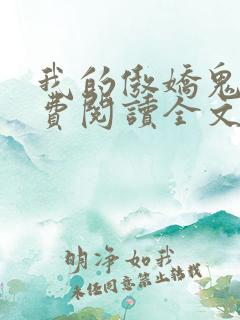 我的傲嬌鬼
費閱讀全文
明净如我
未经同意禁止搭载